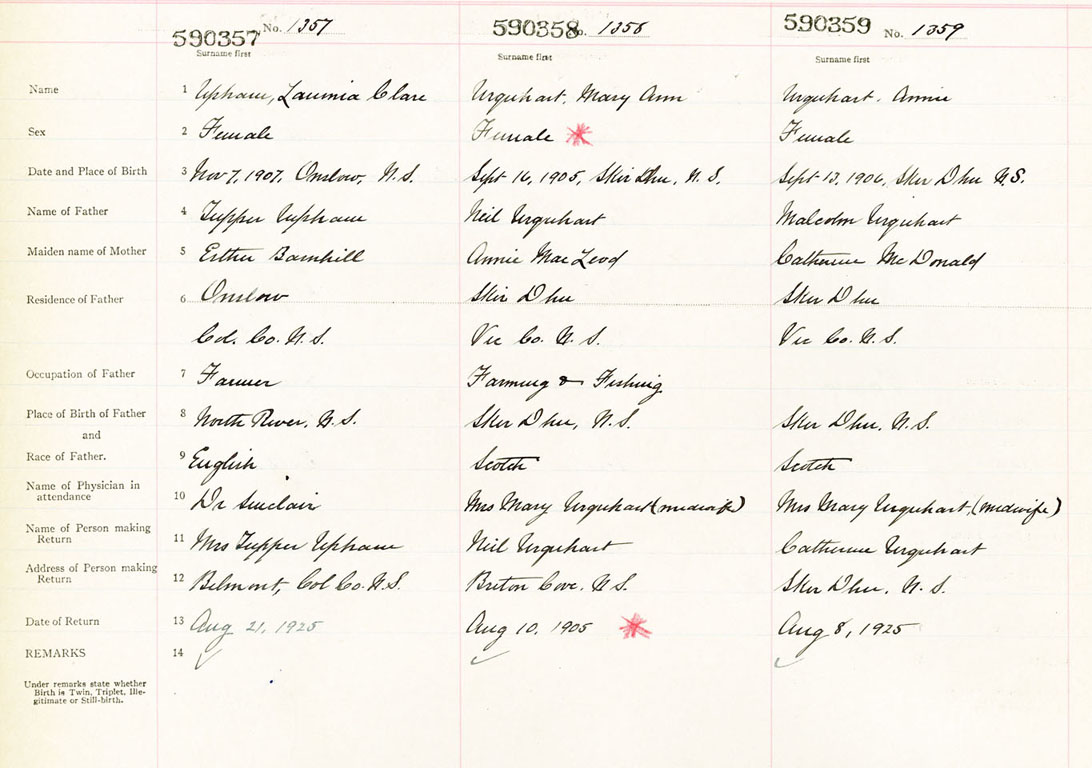 590357 No. 1357 590358 No. 1358 590359 No. 1359
Surname first Surname first Surname first
Name 1 Upham, Clare Urquhart, Mary Ann Urquhart, Annie
Sex 2 Female Female Female
Date and Place of Birth 3 Nov 7, 1907, Onslow, N.S. Sept 16, 1905, Skir Dhu, N.S. Sept 13, 1906, Skir Dhu N.S.
Name of Father 4 Tupper Upham Neil Urquhart Malcolm Urquhart
Maiden name of Mother 5 Esther Barnhill Annie MacLeod Catherine McDonald
Residence of Father 6 Onslow Skir Dhu Skir Dhu
Col. Co. N.S. Vic Co. N.S. Vic Co. N.S.
Occupation of Father 7 Farmer Farming & Fishing
Place of Birth of Father 8 North River, N.S. Skir Dhu, N.S. Skir Dhu, N.S.
and
Race of Father. 9 English Scotch Scotch
Name of Physician in
attendance 10 Dr Sinclair Mrs Mary Urquhart (midwife) Mrs Mary Urquhart, (midwife)
Name of Person making
Return 11 Mrs Tupper Upham Neil Urquhart Catherine Urquhart
Address of Person making
Return 12 Belmont, Col Co. N.S. Breton Cove, N.S. Skir Dhu, N.S.
Date of Return 13 Aug 21, 1925 Aug 10, 1905 Aug 8, 1925
REMARKS 14
Under remarks state whether
Birth is Twin, Triplet, Ille-
gitimate or Still-birth.